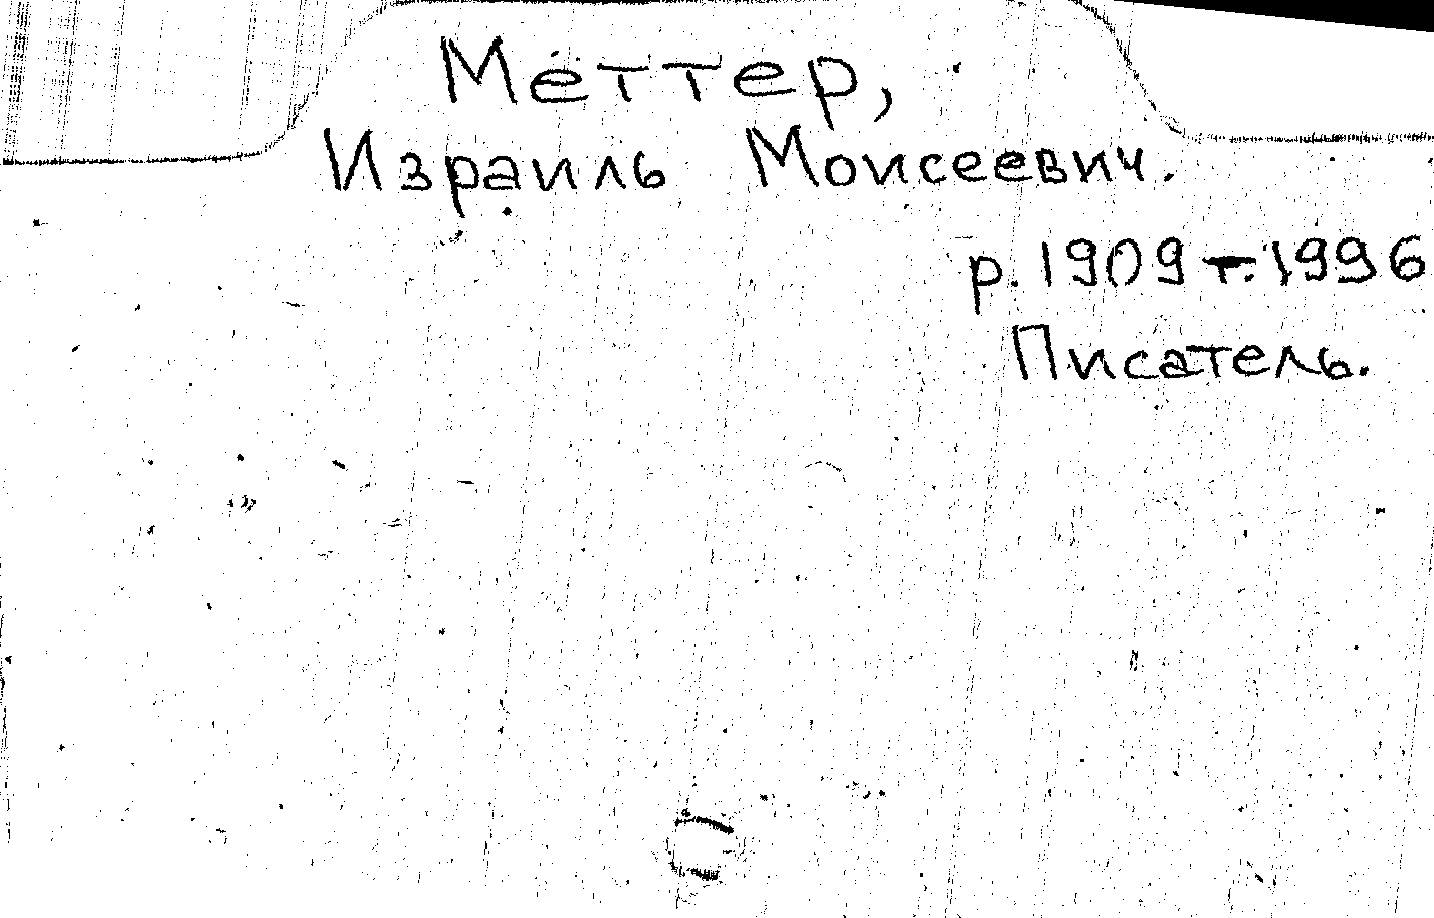 Меттер,
Израиль Моисеевич.
р. 1909 - 1996
Писатель.